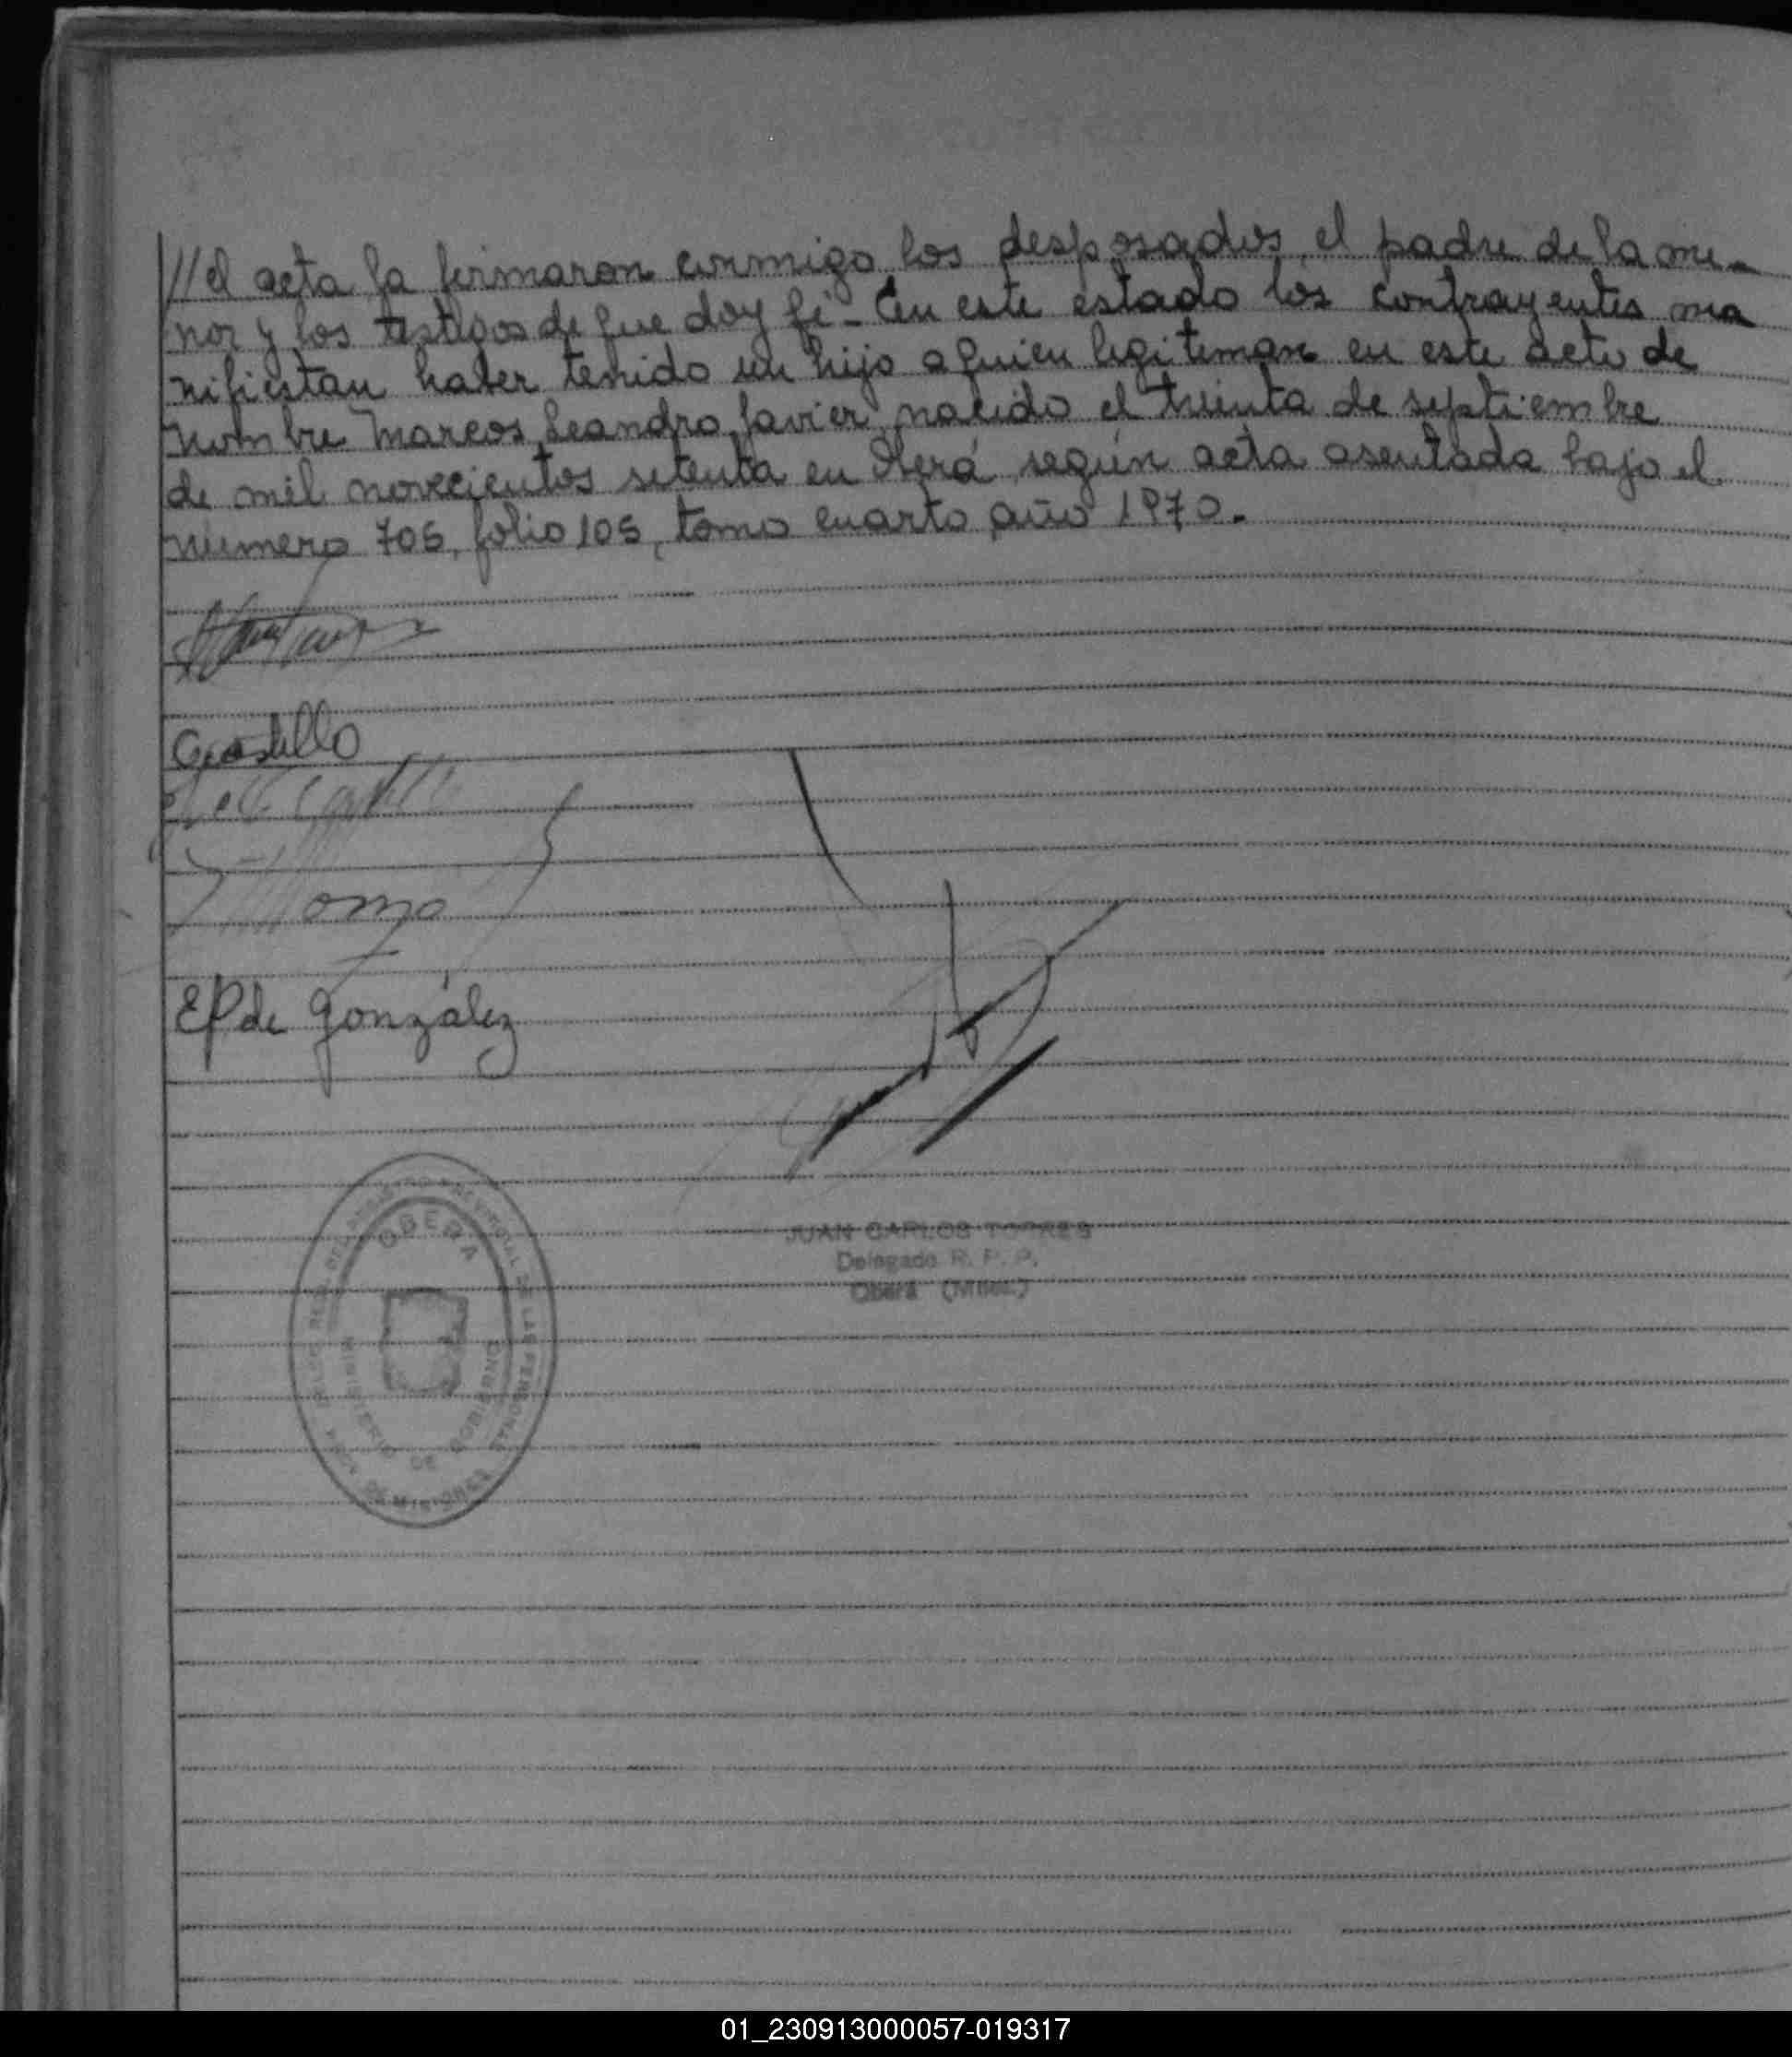 //el acta la firmaron conmigo los desposados, el padre de la me-
nor y los testigos de que doy fé_ En este estado los contrayentes ma
nifiestan haber tenido un hijo a quien legitiman en este acto de
nombre Marcos Leandro Javier, nacido el treinta de septiembre
de mil novecientos setenta en Oberá, según acta asentada bajo el
número 705, folio 105, tomo cuarto, año 1970.-
Castillo
EP de González
OBERA
MINISTERIO DE GOBIERNO
PROV. DE MISIONES
JUAN CARLOS TORRES
Delegado R. P. P.
Oberá (Mnes.)
01_230913000057-019317